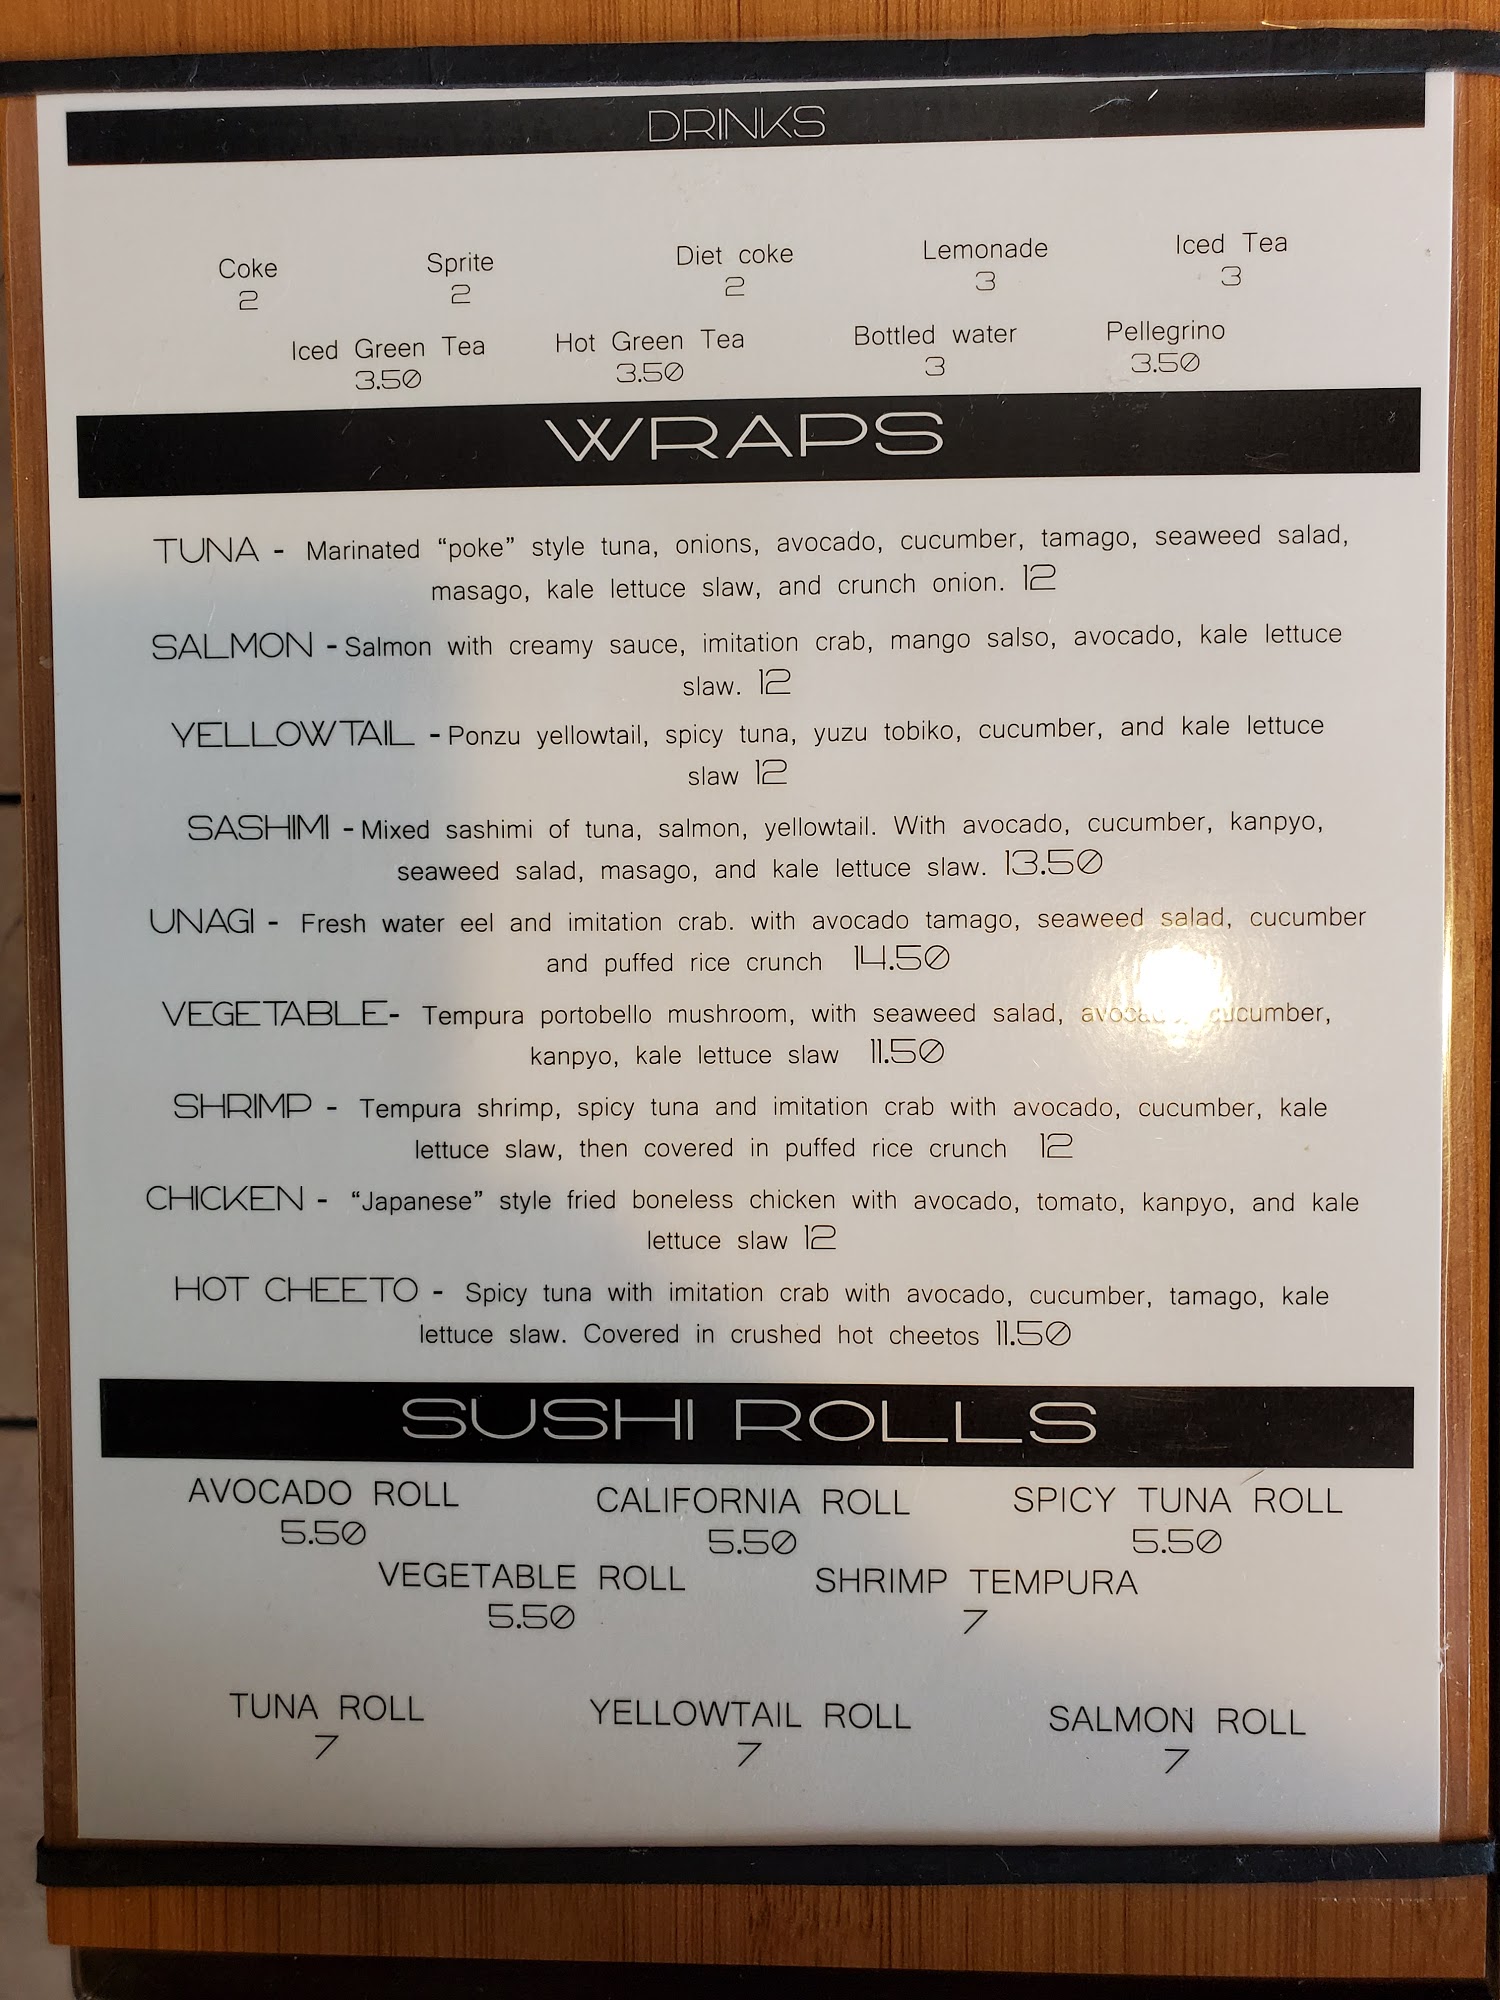 DRINKS
Coke Sprite Diet coke Lemonade Iced Tea
2 2 2 3 3
Iced Green Tea Hot Green Tea Bottled water Pellegrino
3.50 3.50 3 3.50
WRAPS
TUNA - Marinated “poke” style tuna, onions, avocado, cucumber, tamago, seaweed salad,
masago, kale lettuce slaw, and crunch onion. 12
SALMON - Salmon with creamy sauce, imitation crab, mango salso, avocado, kale lettuce
slaw. 12
YELLOWTAIL - Ponzu yellowtail, spicy tuna, yuzu tobiko, cucumber, and kale lettuce
slaw 12
SASHIMI - Mixed sashimi of tuna, salmon, yellowtail. With avocado, cucumber, kanpyo,
seaweed salad, masago, and kale lettuce slaw. 13.50
UNAGI - Fresh water eel and imitation crab. with avocado tamago, seaweed salad, cucumber
and puffed rice crunch 14.50
VEGETABLE- Tempura portobello mushroom, with seaweed salad, avocado, cucumber,
kanpyo, kale lettuce slaw 11.50
SHRIMP - Tempura shrimp, spicy tuna and imitation crab with avocado, cucumber, kale
lettuce slaw, then covered in puffed rice crunch 12
CHICKEN - “Japanese” style fried boneless chicken with avocado, tomato, kanpyo, and kale
lettuce slaw 12
HOT CHEETO - Spicy tuna with imitation crab with avocado, cucumber, tamago, kale
lettuce slaw. Covered in crushed hot cheetos 11.50
SUSHI ROLLS
AVOCADO ROLL CALIFORNIA ROLL SPICY TUNA ROLL
5.50 5.50 5.50
VEGETABLE ROLL SHRIMP TEMPURA
5.50 7
TUNA ROLL YELLOWTAIL ROLL SALMON ROLL
7 7 7